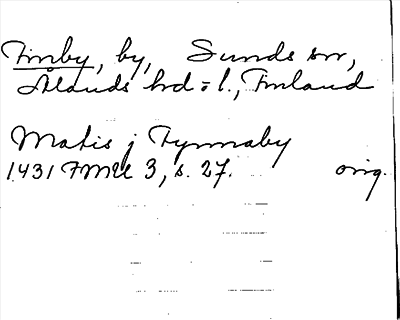 Finby, by, Sunds sn,
Ålands hd o l., Finland
Matis j Fynnaby
1431 FMU 3, s. 27. orig.